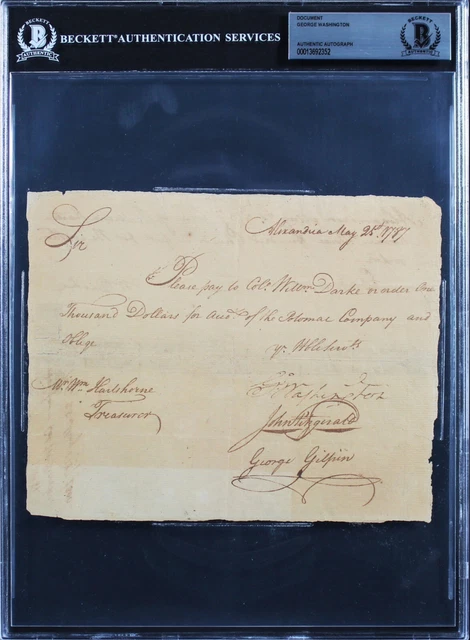 BECKETT
B
AUTHENTIC
BECKETT® AUTHENTICATION SERVICES
DOCUMENT
GEORGE WASHINGTON
AUTHENTIC AUTOGRAPH
00013692352
BECKETT
B
AUTHENTIC
Alexandria May 25th. 1787
Sir
Please pay to Colo. Willm Darke or order One
Thousand Dollars for Acct. of the Potomac Company and
Oblige
yr. Hble Servts.
Go Washington
Mr. Wm. Hartshorne
Treasurer
John Fitzgerald
George Gilpin